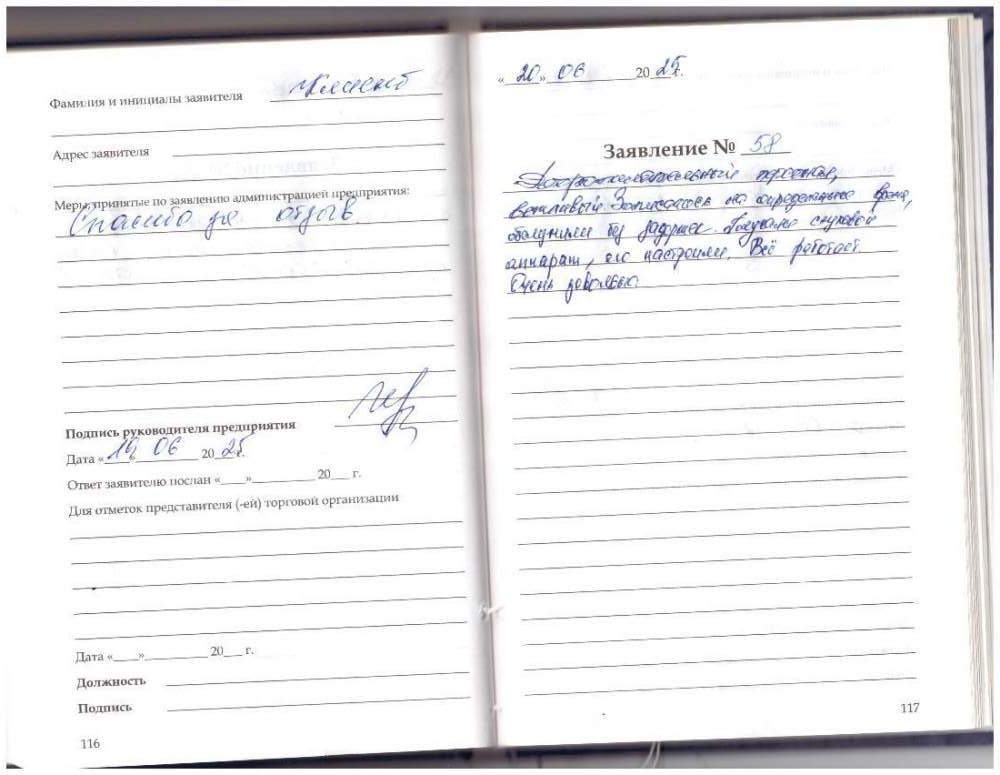 Фамилия и инициалы заявителя Клиент
Адрес заявителя
Меры, принятые по заявлению администрацией предприятия:
Спасибо за отзыв
Подпись руководителя предприятия
Дата «19» 06 2025 г.
Ответ заявителю послан «____»__________ 20___ г.
Для отметок представителя (-ей) торговой организации
Дата «____»__________ 20___ г.
Должность
Подпись
116
«20» 06 2025 г.
Заявление № 58
Доброжелательный персонал,
вежливый. Записалась на определенное время,
обслужили без задержек. Получили слуховой
аппарат, его настроили. Всё работает.
Очень довольны
117